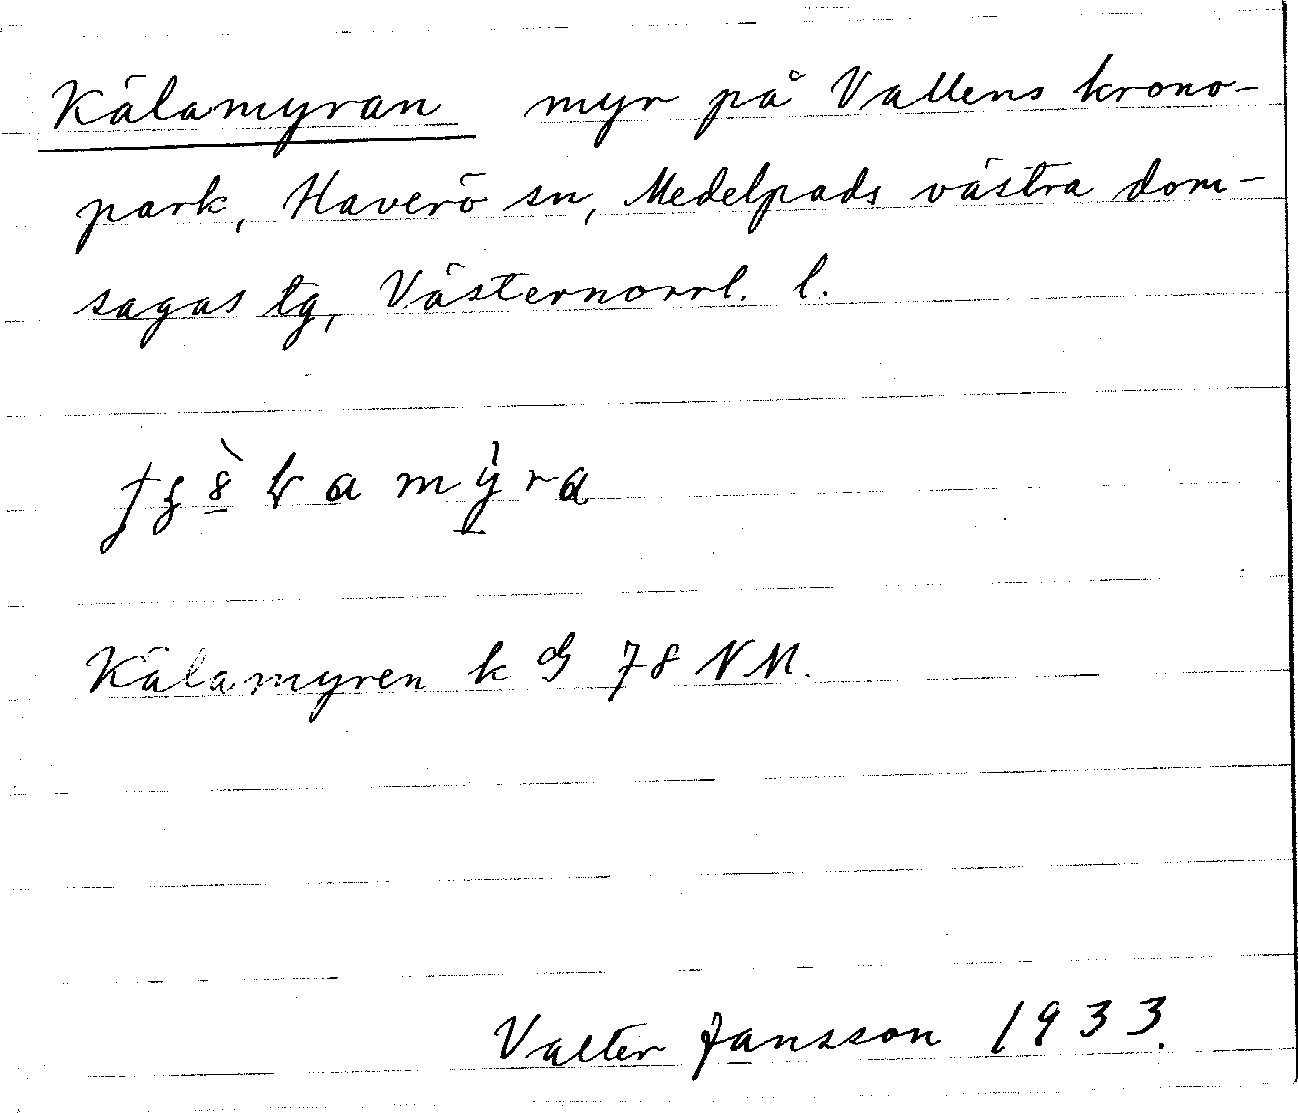 Kälamyran myr på Vallens krono-
park, Haverö sn, Medelpads västra dom-
sagas tg, Västernorrl. l.
Kälamyren k 78 NM.
Valter Jansson 1933.